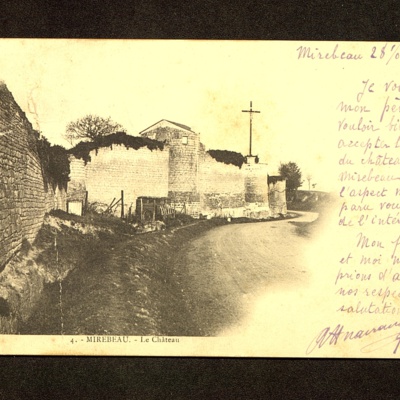 Mirebeau 28
Je vou
mon pèr
vouloir bi
accepter l
du château
Mirebeau
l'aspect
paru vou
de l'inté
Mon f
et moi v
prions d'a
nos respec
salutati
4. - MIREBEAU. - Le Château